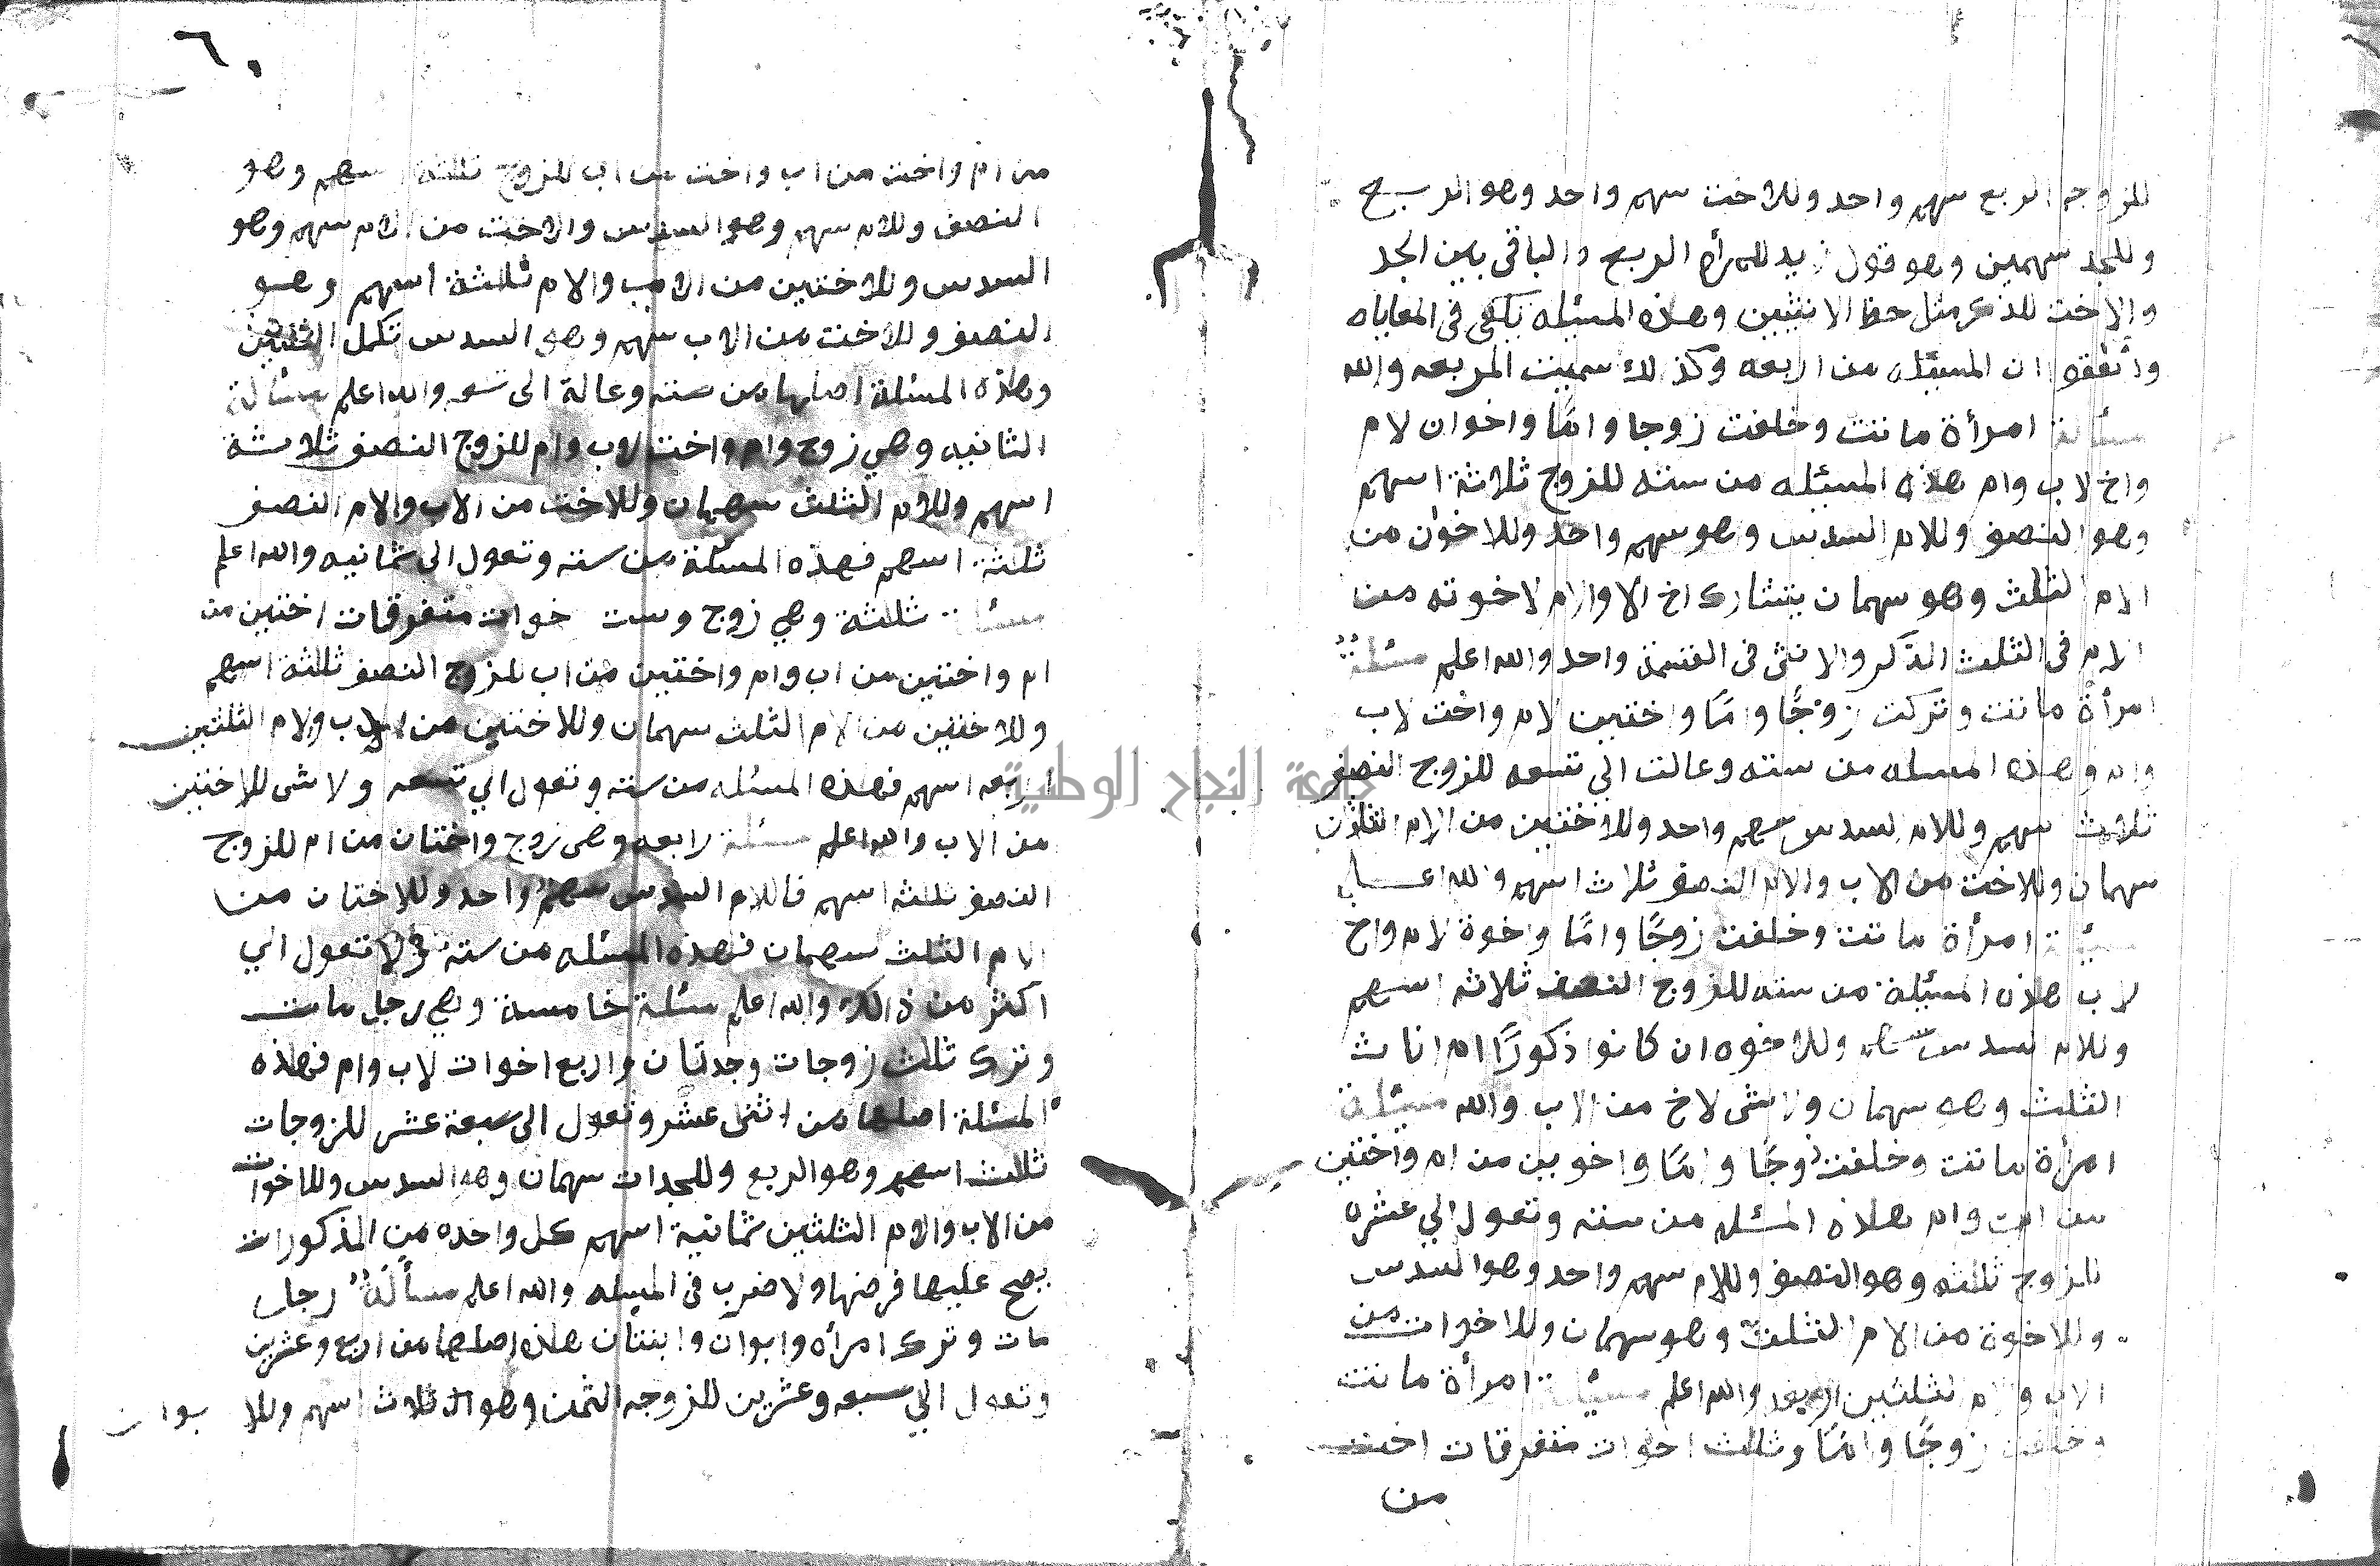 للزوجه الربع سهم واحد وللاخت سهم واحد وهو الربع
وللجد سهمين وهو قول زيد للمرأه الربع والباقي بين الجد
والاخت للذكر مثل حظ الانثيين وهذه المسئله تلقى في المعاياه
واتفقوا ان المسئله من اربعه وكذلك سميت المربعه والله
مسئالة امرأة ماتت وخلفت زوجا واما واخوان لام
واخ لاب وام هذه المسئله من سته للزوج ثلاثة اسهم
وهو النصف وللام السدس وهو سهم واحد وللاخوان من
الام الثلث وهو سهمان يتشارك اخ الاوالام لاخوته من
الام في الثلث الذكر والانثى في القسمة واحد والله اعلم مسئلة
امرأة ماتت وتركت زوجًا وامًا واختين لام واخت لاب
وام وهذه المسله من سته وعالت الى تسعه للزوج النصف
ثلاث سهم وللام السدس سهم واحد وللاختين من الام الثلث
سهمان وللاخت من الاب والام النصف ثلاث اسهم والله اعلم
مسئلة امرأة ماتت وخلفت زوجًا وامًا واخوة لام واخ
لاب هذه المسئلة من سته للزوج النصف ثلاثه اسهم
وللام السدس سهم وللاخوه ان كانوا ذكورًا ام اناث
الثلث وهو سهمان ولا شى لاخ من الاب والله مسئلة
امرأة ماتت وخلفت زوجًا وامًا واخوين من ام واختين
من اب وام هذه المسئله من سته وتعول الي عشره
للزوج ثلثه وهو النصف وللام سهم واحد وهو السدس
وللاخوة من الام الثلث وهو سهمان وللاخوات من
الاب والام الثلثين اربعه والله اعلم مسئلة امرأة ماتت
وخلفت زوجًا وامًا وثلث اخوات متفرقات اخت
من
٦٠
من ام واخت من اب واخت من اب للزوج ثلثه اسهم وهو
النصف وللام سهم وهو السدس والاخت من الام سهم وهو
السدس وللاختين من الاب والام ثلثة اسهم وهو
النصف وللاخت من الاب سهم وهو السدس تكمل الثلثين
وهذه المسئلة اصلها من سته وعالة الى تسع والله اعلم مسئالة
الثانيه وهي زوج وام واخت لاب وام للزوج النصف ثلاثة
اسهم وللام الثلث سهمان وللاخت من الاب والام النصف
ثلثة اسهم فهذه المسئلة من سته وتعول الى ثمانيه والله اعلم
مسئالة ثلثة وهي زوج وست خوات متفرقات اختين من
ام واختين من اب وام واختين من اب للزوج النصف ثلثة اسهم
وللاختين من الام الثلث سهمان وللاختين من الاب والام الثلثين
اربعه اسهم فهذه المسئله من سته وتعول الي تسعه ولا شى للاختين
من الاب والله اعلم مسئلة رابعه وهى زوج واختان من ام للزوج
النصف ثلثه اسهم فاللام السدس سهم واحد وللاختان من
الام الثلث سهمان فهذه المسئله من سته لا تعول الي
اكثر من ذالك والله اعلم مسئلة خامسة وهي رجل مات
وترك ثلث زوجات وجدتان واربع اخوات لاب وام فهذه
المسئلة اصلها من اثنى عشر وتعول الى سبعة عشر للزوجات
ثلث اسهم وهو الربع وللجدات سهمان وهو السدس وللاخوات
من الاب والام الثلثين ثمانية اسهم كل واحده من المذكورات
يصح عليها فرضها ولا ضرب فى المسله والله اعلم مسألة رجل
مات وترك امرأه وابوان وابنتان هذه اصلها من اربع وعشرين
وتعول الي سبعه وعشرين للزوجه الثمن وهو ثلاث اسهم وللا بوان
جامعة النجاح الوطنية